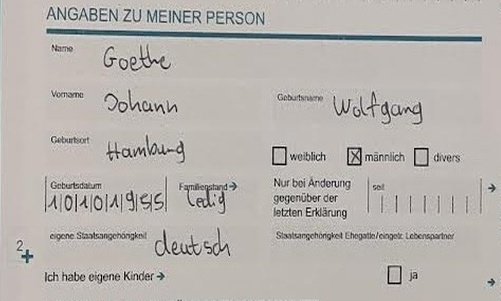 ANGABEN ZU MEINER PERSON
Name
Goethe
Vorname
Johann
Geburtsname
Wolfgang
Geburtsort
Hamburg
weiblich
X männlich
divers
Geburtsdatum
1 0 1 0 1 9 5 5
Familienstand →
ledig
Nur bei Änderung
gegenüber der
letzten Erklärung
seit
→
eigene Staatsangehörigkeit
deutsch
Staatsangehörigkeit Ehegatte/eingetr. Lebenspartner
2+
Ich habe eigene Kinder →
ja
→